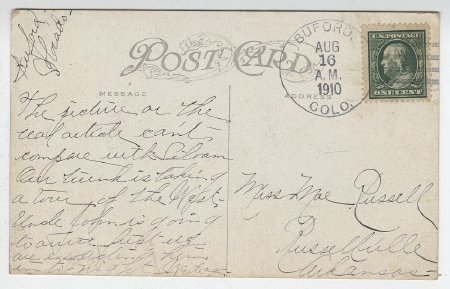 Buford
Colorado
POST CARD
MESSAGE
ADDRESS
BUFORD,
AUG
16
A.M.
1910
COLO.
U.S. POSTAGE
ONE CENT
The picture or the
real article cant
compare with Siloam
Our trunk is taking
a tour of the West.
Uncle John is going
to
are expecting him
in to-night
Miss Mae Russell
Russellville
Arkansas